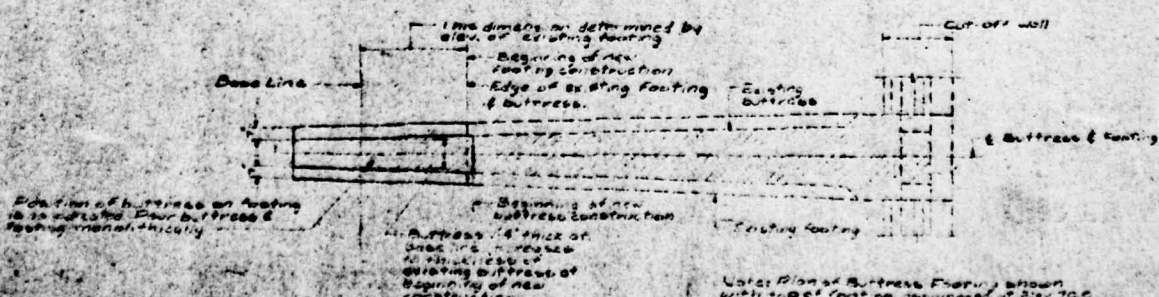 This dimension determined by
elev. of existing footing
Cut-off wall
Beginning of new
footing construction
Base Line
Edge of existing Footing
& buttress.
Existing
buttress
℄ Buttress & Footing
Position of buttress on footing
is as indicated Pour buttress &
footing monolithically
Beginning of new
buttress construction
Existing footing
Buttress 14" thick at
base line increases
to thickness of
existing buttress at
beginning of new
construction
Note: Plan of Buttress Footing shown
with top of footing